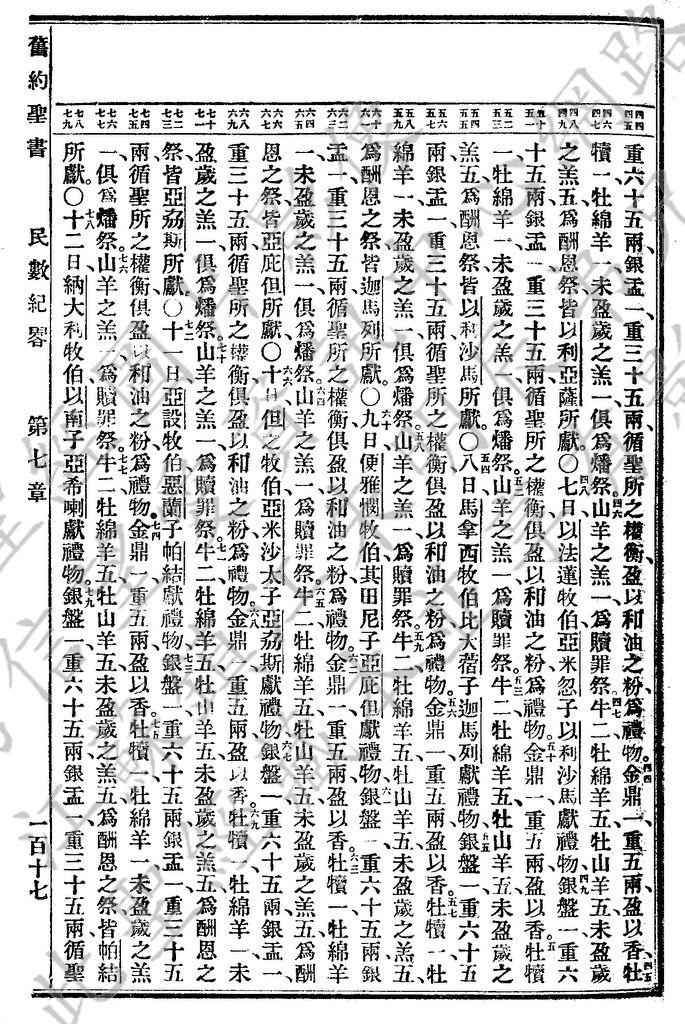 舊約聖書 民數紀畧 第七章 一百十七
四四 四五
四六 四七
四八 四九
五十 五一
五二 五三
五四 五五
五六 五七
五八 五九
六十 六一
六二 六三
六四 六五
六六 六七
六八 六九
七十 七一
七二 七三
七四 七五
七六 七七
七八 七九
重六十五兩銀盂一重三十五兩循聖所之權衡盈以和油之粉爲禮物金鼎一重五兩盈以香牡
犢一牡綿羊一未盈歲之羔一俱爲燔祭山羊之羔一爲贖罪祭牛二牡綿羊五牡山羊五未盈歲
之羔五爲酬恩祭皆以利亞薩所獻〇七日以法蓮牧伯亞米忽子以利沙馬獻禮物銀盤一重六
十五兩銀盂一重三十五兩循聖所之權衡俱盈以和油之粉爲禮物金鼎一重五兩盈以香牡犢
一牡綿羊一未盈歲之羔一俱爲燔祭山羊之羔一爲贖罪祭牛二牡綿羊五牡山羊五未盈歲之
羔五爲酬恩祭皆以利沙馬所獻〇八日馬拿西牧伯比大蓿子迦馬列獻禮物銀盤一重六十五
兩銀盂一重三十五兩循聖所之權衡俱盈以和油之粉爲禮物金鼎一重五兩盈以香牡犢一牡
綿羊一未盈歲之羔一俱爲燔祭山羊之羔一爲贖罪祭牛二牡綿羊五牡山羊五未盈歲之羔五
爲酬恩之祭皆迦馬列所獻〇九日便雅憫牧伯其田尼子亞庇但獻禮物銀盤一重六十五兩銀
盂一重三十五兩循聖所之權衡俱盈以和油之粉爲禮物金鼎一重五兩盈以香牡犢一牡綿羊
一未盈歲之羔一俱爲燔祭山羊之羔一爲贖罪祭牛二牡綿羊五牡山羊五未盈歲之羔五爲酬
恩之祭皆亞庇但所獻〇十日但之牧伯亞米沙太子亞劦斯獻禮物銀盤一重六十五兩銀盂一
重三十五兩循聖所之權衡俱盈以和油之粉爲禮物金鼎一重五兩盈以香牡犢一牡綿羊一未
盈歲之羔一俱爲燔祭山羊之羔一爲贖罪祭牛二牡綿羊五牡山羊五未盈歲之羔五爲酬恩之
祭皆亞劦斯所獻〇十一日亞設牧伯惡蘭子帕結獻禮物銀盤一重六十五兩銀盂一重三十五
兩循聖所之權衡俱盈以和油之粉爲禮物金鼎一重五兩盈以香牡犢一牡綿羊一未盈歲之羔
一俱爲燔祭山羊之羔一爲贖罪祭牛二牡綿羊五牡山羊五未盈歲之羔五爲酬恩之祭皆帕結
所獻〇十二日納大利牧伯以南子亞希喇獻禮物銀盤一重六十五兩銀盂一重三十五兩循聖